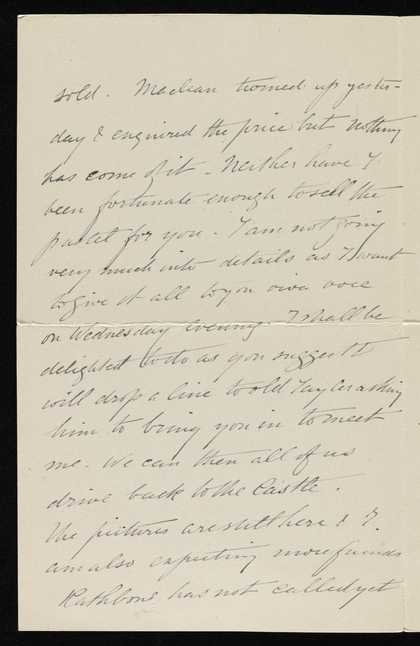 sold. Maclean turned up yester-
day & enquired the price but nothing
has come of it - Neither have I
been fortunate enough to sell the
pastel for you - I am not going
very much into details as I want
to give it all to you viva voce
on Wednesday evening. I shall be
delighted to do as you suggest I
will drop a line to old Taylor asking
him to bring you in to meet
me. We can then all of us
drive back to the Castle.
The pictures are still here & I
am also expecting more friends
Rathbone has not called yet